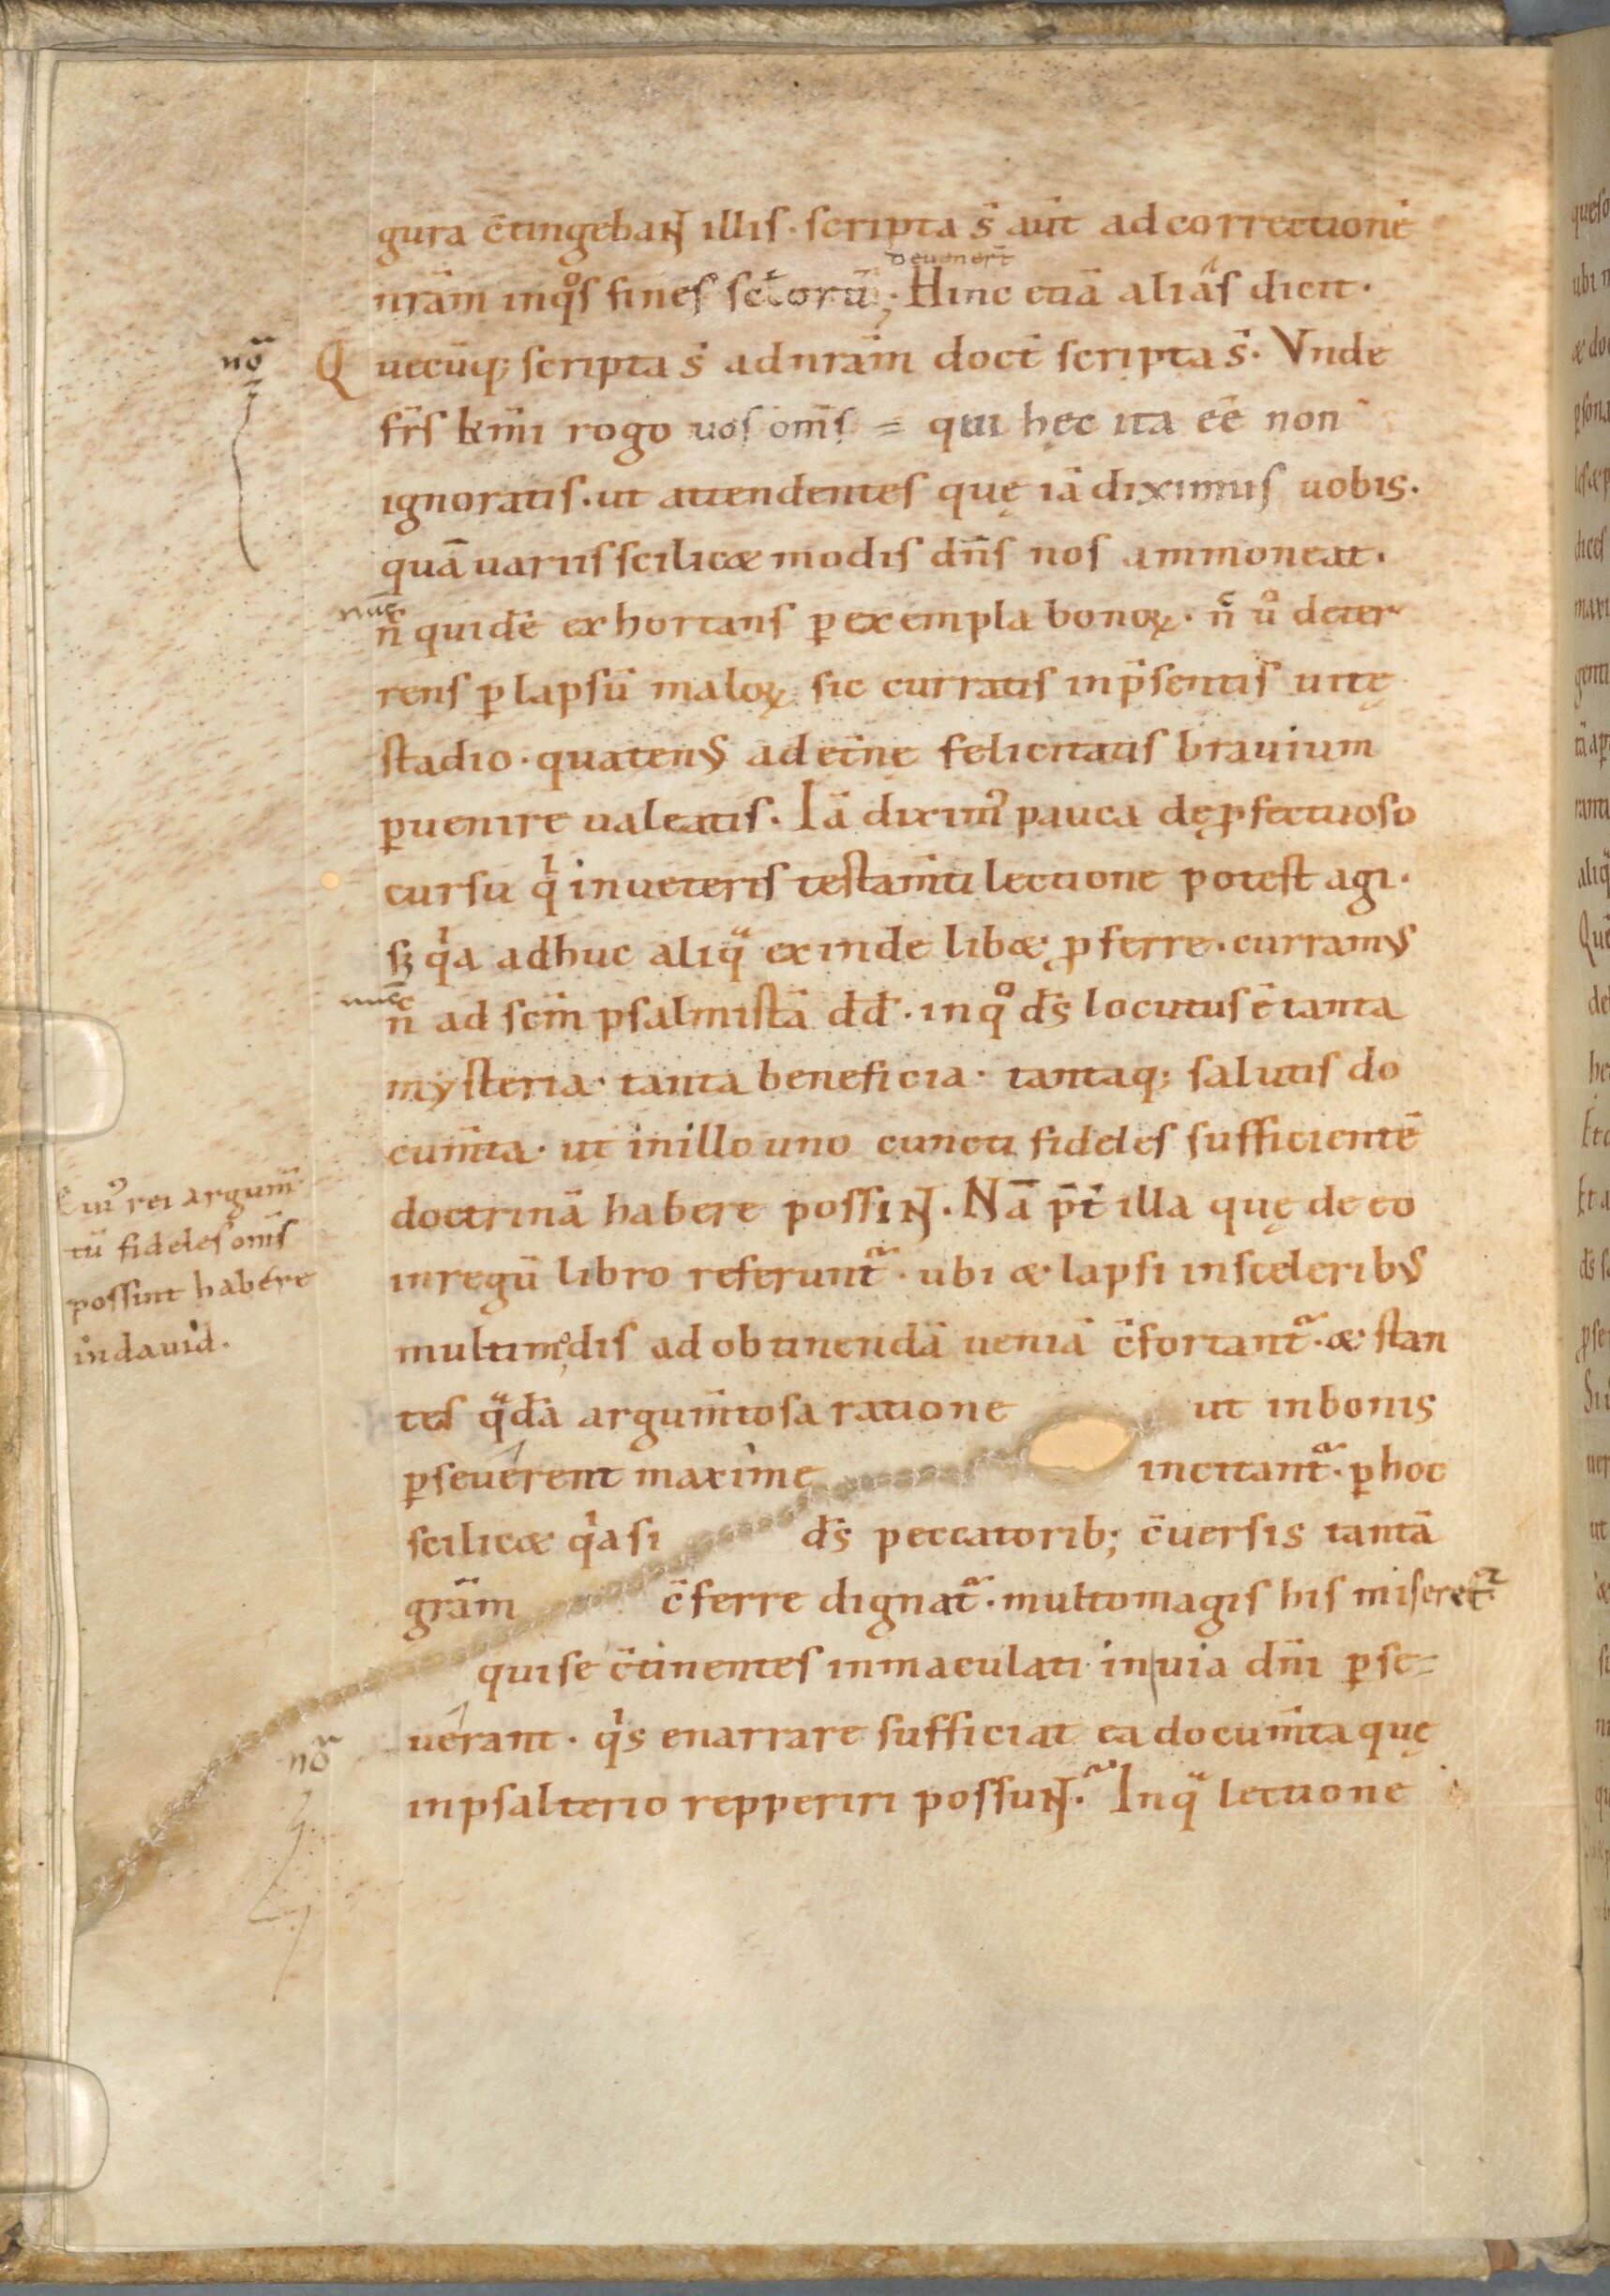 gura c̄tingebaN̄ illis· scripta s̄ aūt ad correctionē
nr̄am inq°s fines sc̄lorū;· Hinc etiā aliás dicit·
deuener̄t
nō
Quecūq; scripta s̄ ad nr̄am doct̄ scripta s̄· Vnde
fr̄s km̄i rogo uos om̄s = qui hęc ita eē non
ignoratis· ut attendentes quę iā diximus uobis·
quā uariis scilicæ modis dn̄s nos ammoneat·
nūc
n̄ quidē exhortans ꝑ exempla bonoꝝ· n̄c ů deter
rens ꝑ lapsū maloꝝ sic curratis in p̄sentis uitę
stadio· quatenꝰ ad et̄nę felicitatis brauium
ꝑuenire ualeatis· Iā diximꝰ pauca de ꝓfectuoso
cursu qͥ in ueteris testam̄ti lectione potest agi·
sꝫ qͥa adhuc aliqͣ exinde libæ ꝓferre· curramꝰ
nūc
n̄c ad sc̄m psalmistā dd̄· in q° ds̄ locutus ē tanta
mysteria· tanta beneficia· tantaq; salutis do
cum̄ta· ut in illo uno cuncti fideles sufficientē
doctrinā habere possiN̄· Nā p̄t illa quę de eo
in regū libro referunt᷑· ubi æ lapsi in sceleribꝰ
multim°dis ad obtinendā ueniā c̄fortant᷑· æ stan
tes qͣdā argum̄tosa ratione ut in bonis
ꝑseuérent maxime incitant᷑· ꝑ hoc
scilicæ qͥa si ds̄ peccatorib; c̄uersis tantā
gr̄am c̄ferre dignat᷑· multo magis his miseret᷑·
qui se c̄tinentes inmaculati in uia dn̄i ꝑse=
uérant· qͥs enarrare sufficiat ea docum̄ta quę
in psalterio repperiri possuN̄᷑· In qͣ lectione
Cuiꝰ rei argum̄
tū fideles om̄s
possint habére
in dauid.
nō